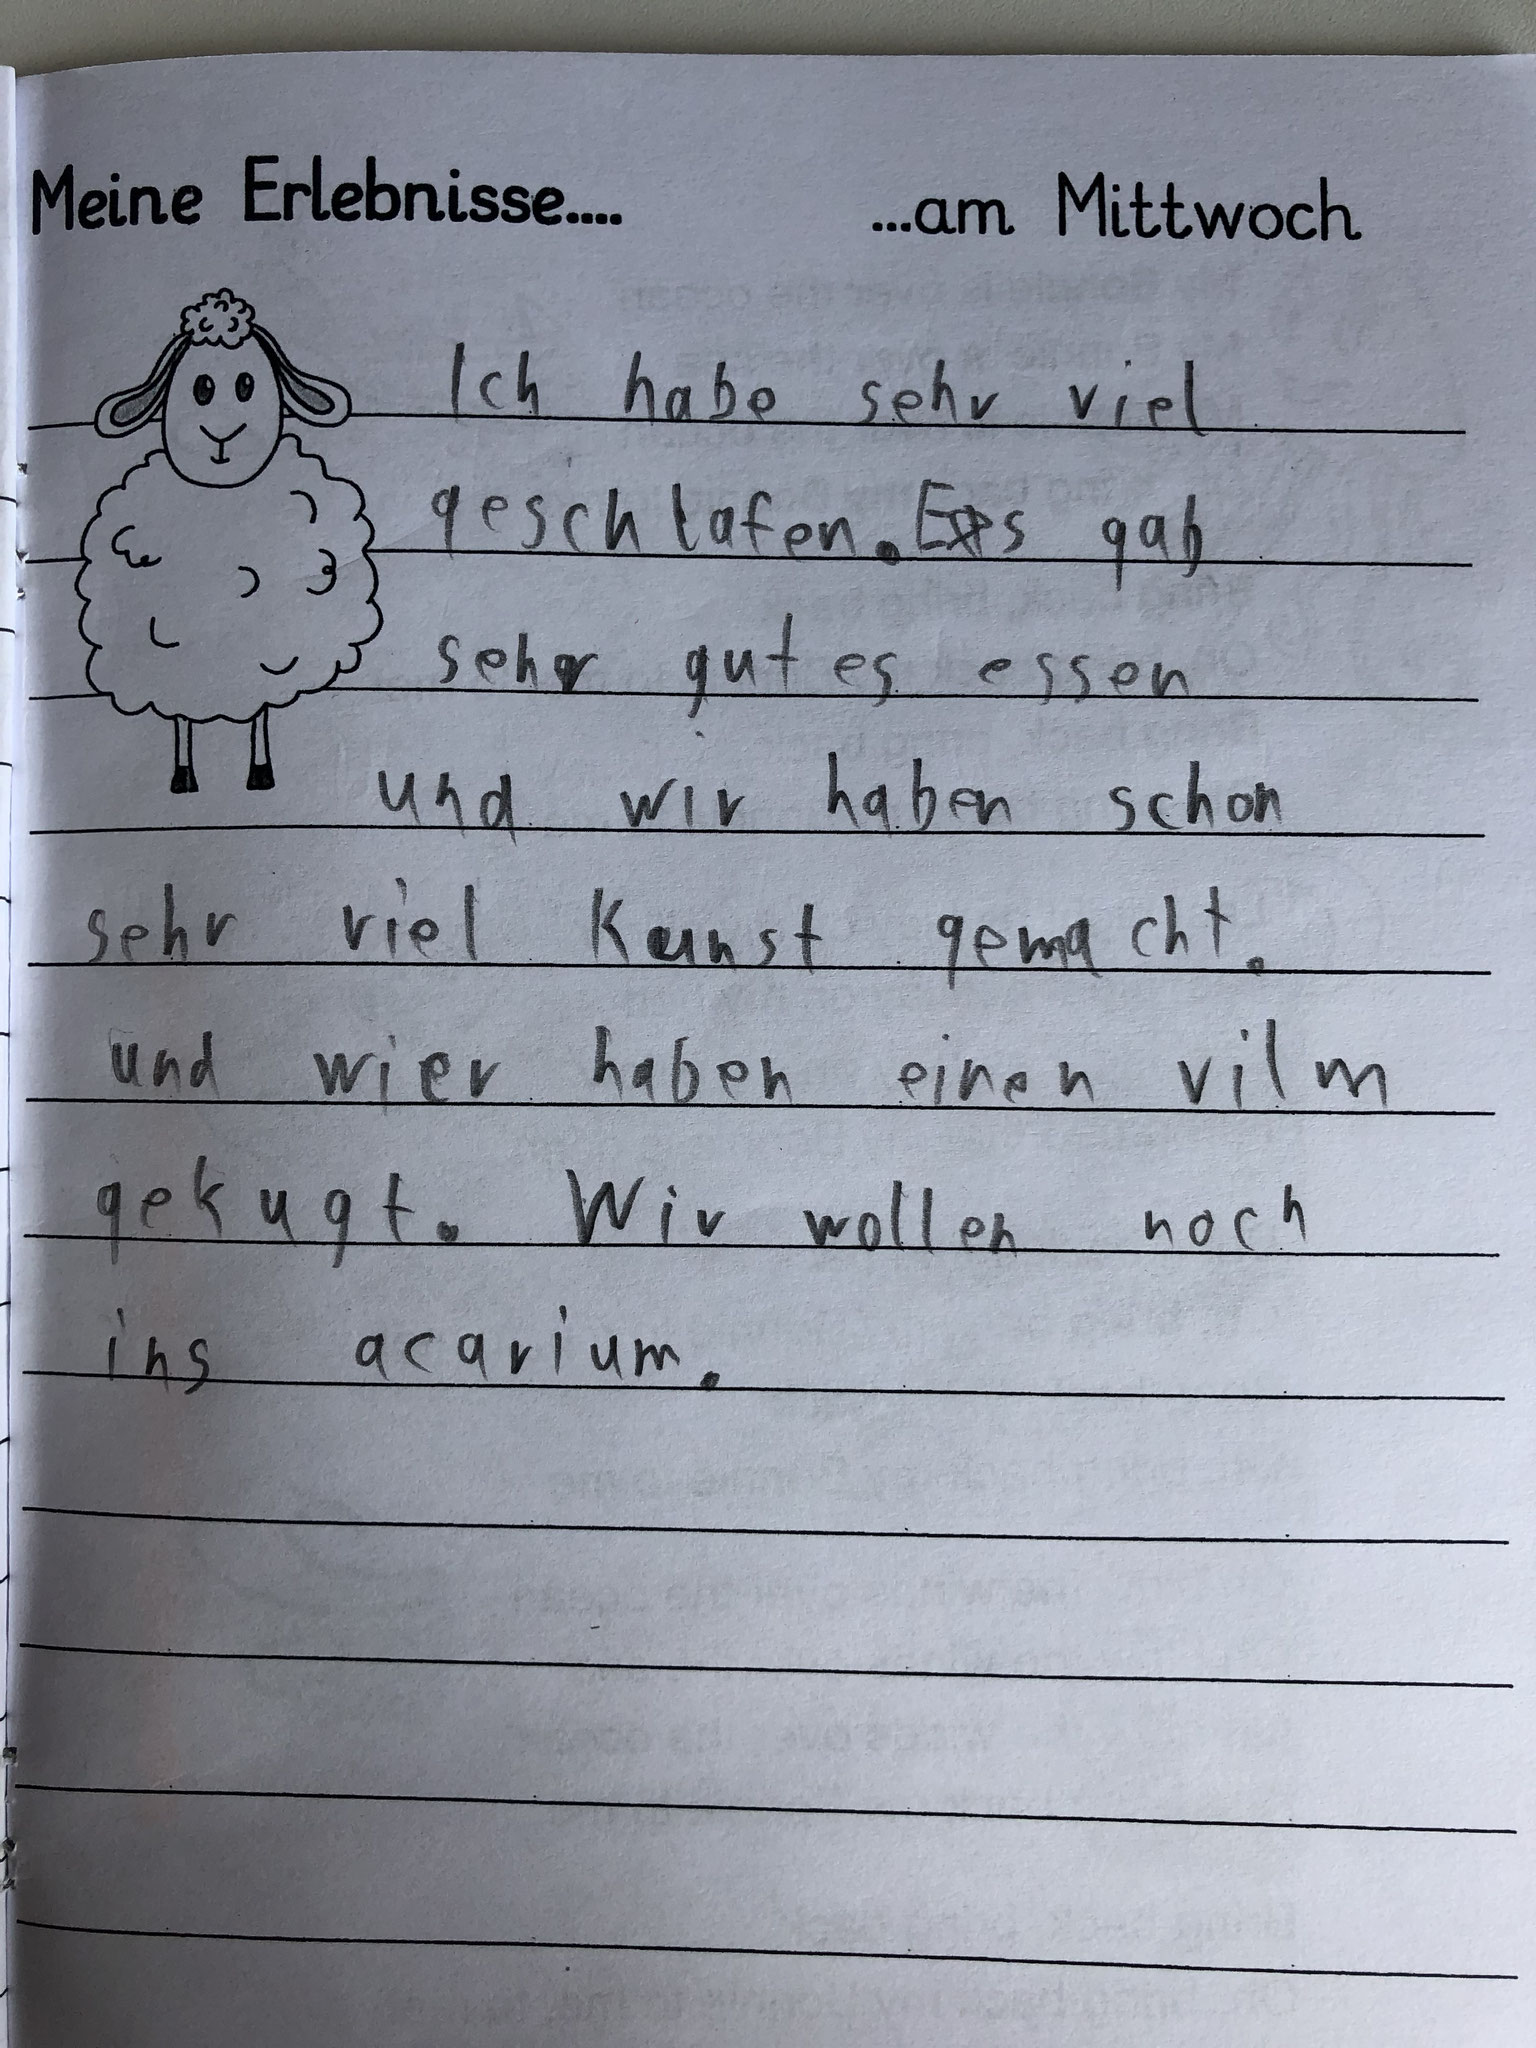 Meine Erlebnisse.... ...am Mittwoch
Ich habe sehr viel
geschlafen. Es gab
sehr gutes essen
und wir haben schon
sehr viel Kunst gemacht.
und wier haben einen vilm
gekugt. Wir wollen noch
ins acarium.